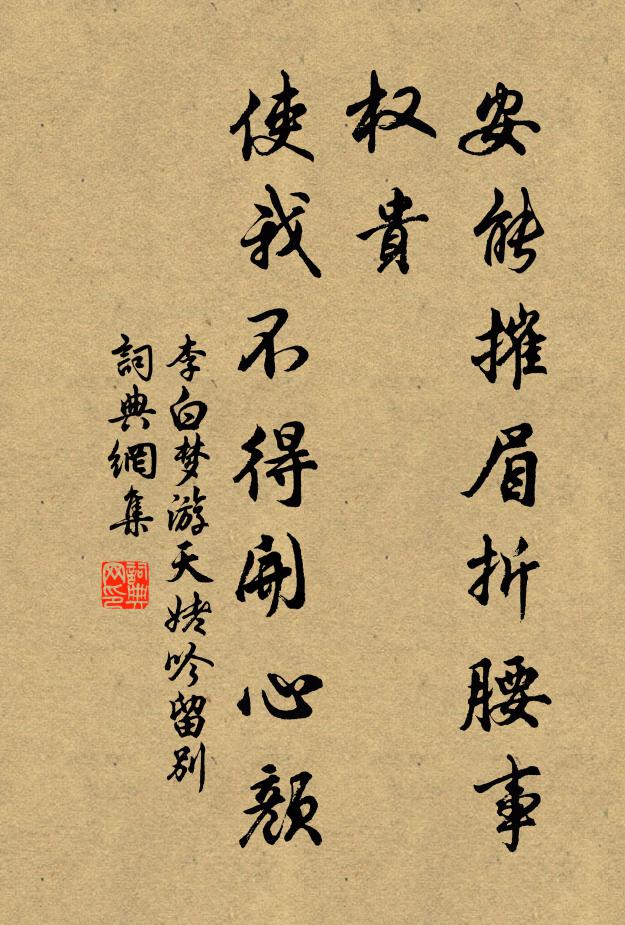 安能摧眉折腰事
权貴
使我不得開心顔
李白梦游天姥吟留别
詞典網集
詞典网印